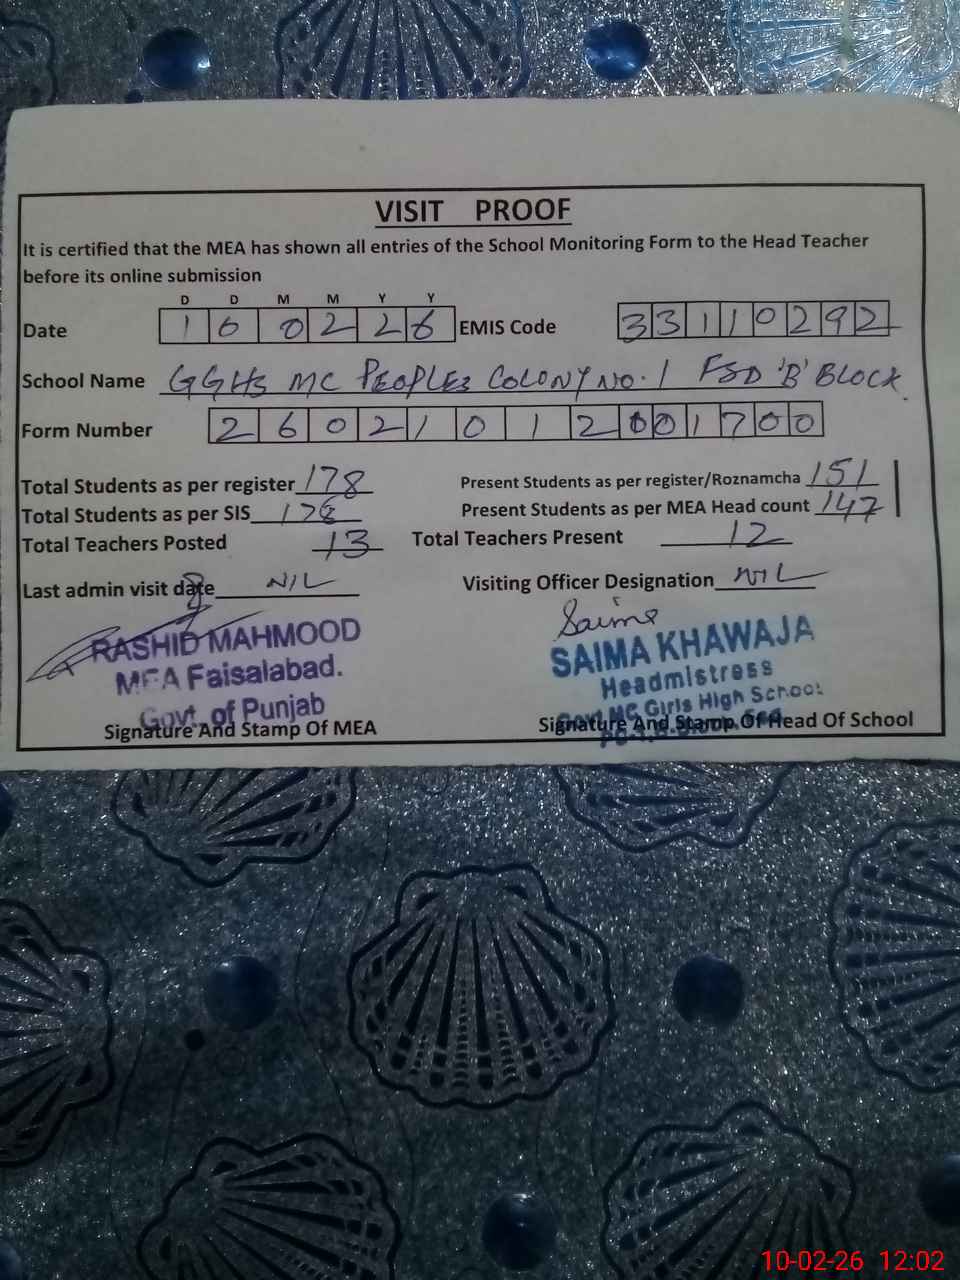 VISIT PROOF
It is certified that the MEA has shown all entries of the School Monitoring Form to the Head Teacher
before its online submission
D D M M Y Y
Date 1 0 0 2 2 6 EMIS Code 3 3 1 1 0 2 9 2
School Name GGHS MC PEOPLES COLONY NO. 1 FSD 'B' BLOCK.
Form Number 2 6 0 2 1 0 1 2 0 0 1 7 0 0
Total Students as per register 178 Present Students as per register/Roznamcha 151
Total Students as per SIS 178 Present Students as per MEA Head count 147
Total Teachers Posted 13 Total Teachers Present 12
Last admin visit date NIL Visiting Officer Designation NIL
Saima
RASHID MAHMOOD SAIMA KHAWAJA
MEA Faisalabad. Headmistress
Govt. of Punjab Govt MC Girls High School
Signature And Stamp Of MEA Signature And Stamp Of Head Of School
10-02-26 12:02